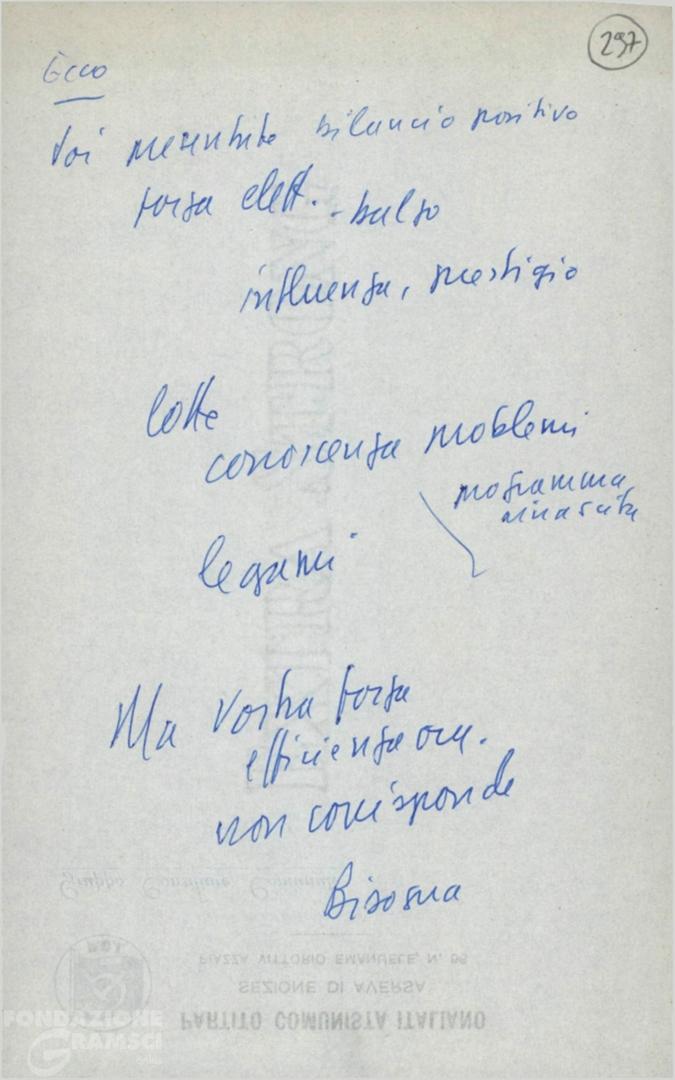 297
Ecco
Voi presentate bilancio positivo
forza elett. - balzo
influenza, prestigio
lotte
conoscenza problemi
programma
rinascita
legami
Ma vostra forza
efficienza org.
non corrisponde
Bisogna
Gruppo Consiliare Comunista
PIAZZA VITTORIO EMANUELE, N. 66
SEZIONE DI AVERSA
PARTITO COMUNISTA ITALIANO
FONDAZIONE
GRAMSCI